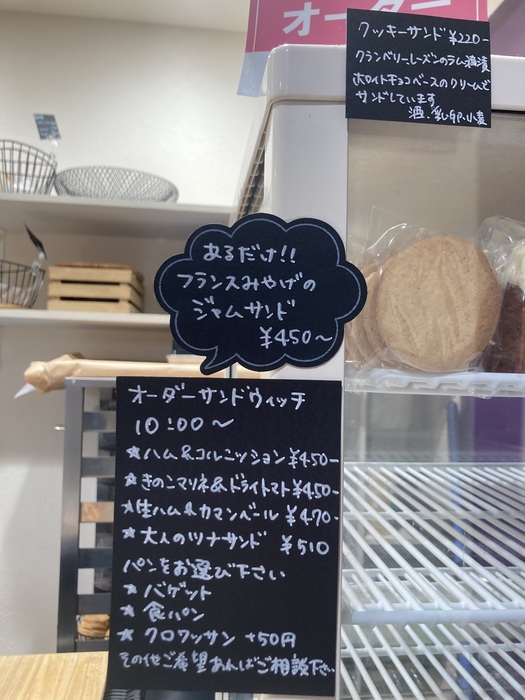 オーダー
クッキーサンド ¥220-
クランベリーレーズンのラム酒漬
ホワイトチョコベースのクリームで
サンドしています
酒、乳・卵・小麦
あるだけ!!
フランスみやげの
ジャムサンド
¥450〜
オーダーサンドウィッチ
10:00〜
★ハム&コルニッション¥450-
★きのこマリネ&ドライトマト¥450-
★生ハム&カマンベール ¥470-
★大人のツナサンド ¥510
パンをお選び下さい
★バゲット
★食パン
★クロワッサン +50円
その他ご希望あればご相談下さい